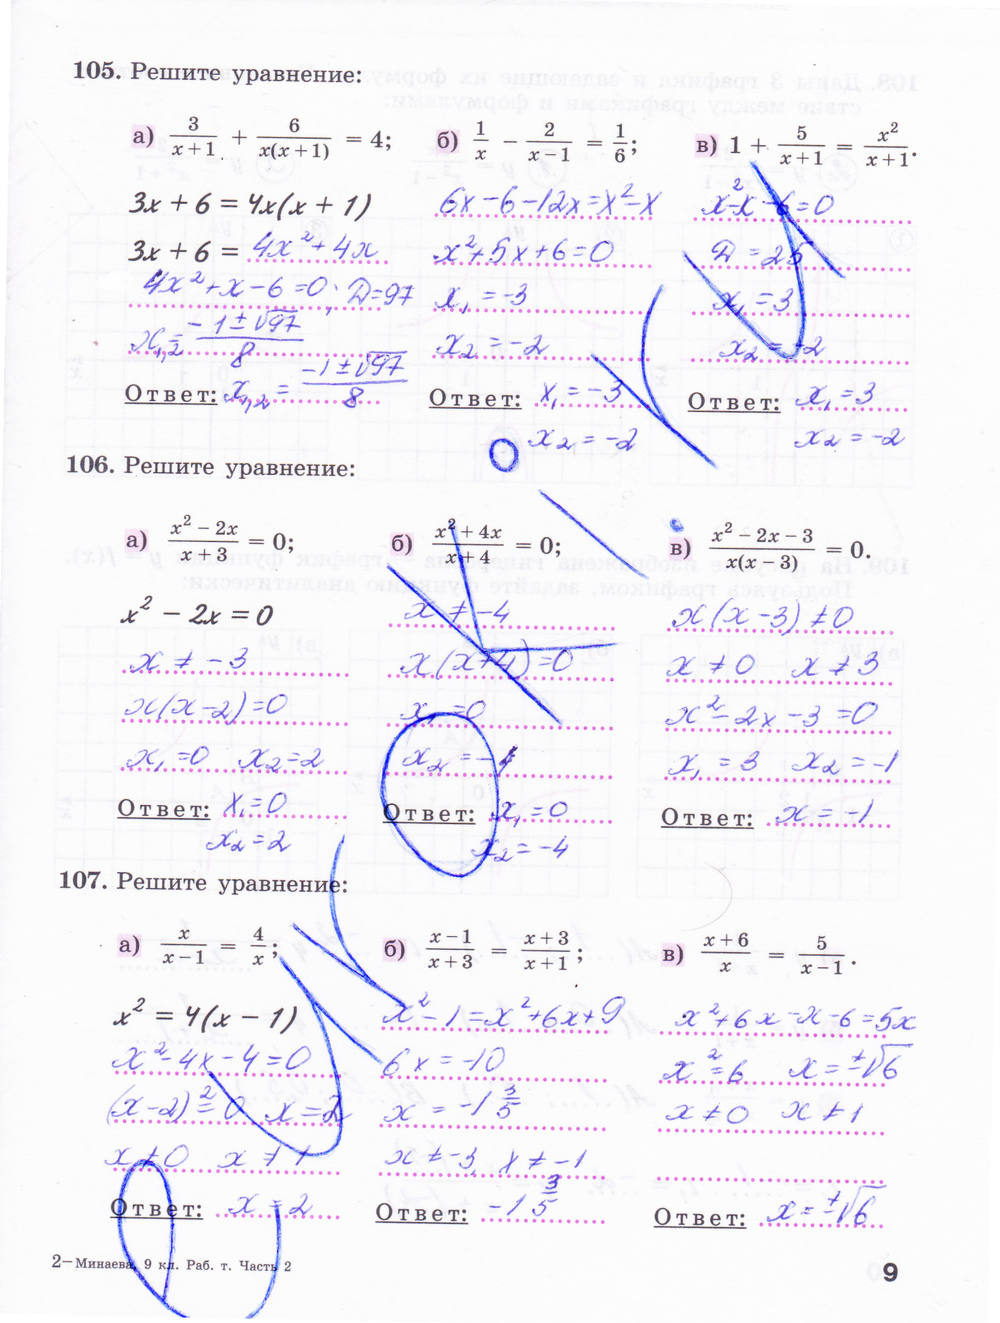 105. Решите уравнение:
а) 3/(x + 1) + 6/(x(x + 1)) = 4;
3x + 6 = 4x(x + 1)
3x + 6 = 4x² + 4x
4x² + x - 6 = 0, D = 97
x₁,₂ = (-1 ± √97)/8
Ответ: x₁,₂ = (-1 ± √97)/8
б) 1/x - 2/(x - 1) = 1/6;
6x - 6 - 12x = x² - x
x² + 5x + 6 = 0
x₁ = -3
x₂ = -2
Ответ: x₁ = -3
x₂ = -2
в) 1 + 5/(x + 1) = x²/(x + 1).
x² - x - 6 = 0
D = 25
x₁ = 3
x₂ = -2
Ответ: x₁ = 3
x₂ = -2
106. Решите уравнение:
а) (x² - 2x)/(x + 3) = 0;
x² - 2x = 0
x ≠ -3
x(x - 2) = 0
x₁ = 0 x₂ = 2
Ответ: x₁ = 0
x₂ = 2
б) (x² + 4x)/(x + 4) = 0;
x ≠ -4
x(x + 4) = 0
x₁ = 0
x₂ = -4
Ответ: x₁ = 0
x₂ = -4
в) (x² - 2x - 3)/(x(x - 3)) = 0.
x(x - 3) ≠ 0
x ≠ 0 x ≠ 3
x² - 2x - 3 = 0
x₁ = 3 x₂ = -1
Ответ: x = -1
107. Решите уравнение:
а) x/(x - 1) = 4/x;
x² = 4(x - 1)
x² - 4x - 4 = 0
(x - 2)² = 0 x = 2
x ≠ 0 x ≠ 1
Ответ: x = 2
б) (x - 1)/(x + 3) = (x + 3)/(x + 1);
x² - 1 = x² + 6x + 9
6x = -10
x = -1 3/5
x ≠ -3, x ≠ -1
Ответ: -1 3/5
в) (x + 6)/x = 5/(x - 1).
x² + 6x - x - 6 = 5x
x² = 6 x = ±√6
x ≠ 0 x ≠ 1
Ответ: x = ±√6
2–Минаева, 9 кл. Раб. т. Часть 2
9